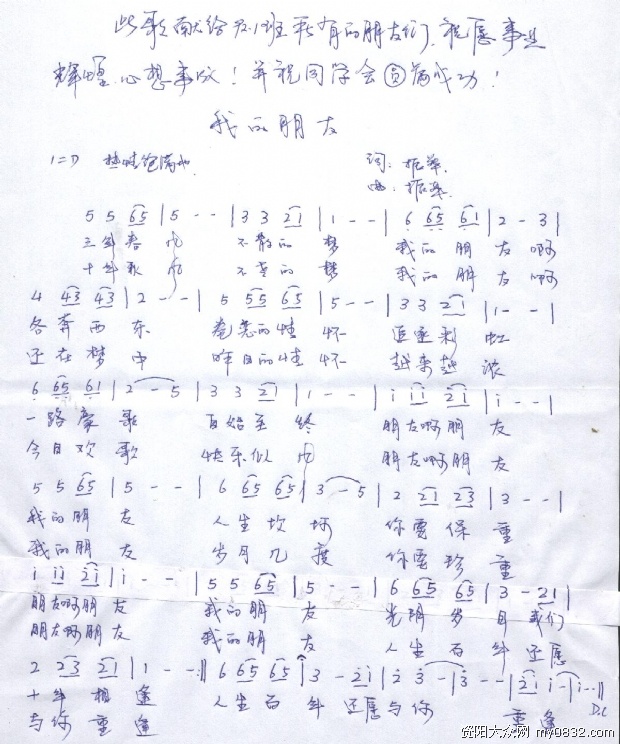 此歌献给友1班所有的朋友们,祝愿事业
辉煌,心想事成!并祝同学会圆满成功!
我的朋友
1=D 热情饱满地 词:振华
曲:振华
5 5 65 | 5 - - | 3 3 21 | 1 - - | 6 65 61 | 2 - 3 |
三年春风 不散的梦 我的朋友啊
十年歌风 不老的梦 我的朋友啊
4 43 43 | 2 - - | 5 55 65 | 5 - - | 3 3 21 | 1 - - |
各奔西东 卷卷的情怀 追逐彩虹
还在梦中 昨日的情怀 越来越浓
6 65 61 | 2 - 5 | 3 3 21 | 1 - - | i ii 2i | i - - |
一路豪歌 自始至终 朋友啊朋友
今日欢歌 快乐似风 朋友啊朋友
5 5 65 | 5 - - | 6 65 65 | 3 - 5 | 2 21 23 | 3 - - |
我的朋友 人生坎坷 你要保重
我的朋友 岁月几度 你要珍重
i ii 2i | i - - | 5 5 65 | 5 - - | 6 65 65 | 3 - 21 |
朋友啊朋友 我的朋友 光阴岁月我们
朋友啊朋友 我的朋友 人生百年还愿
2 23 21 | 1 - - || 6 65 65 | 3 - 2i | 2 3 - | 3 - - | 2i i - | i - - ||
十年相逢 人生百年还愿与你 重逢 D.C
与你重逢
资阳大众网 my0832.com